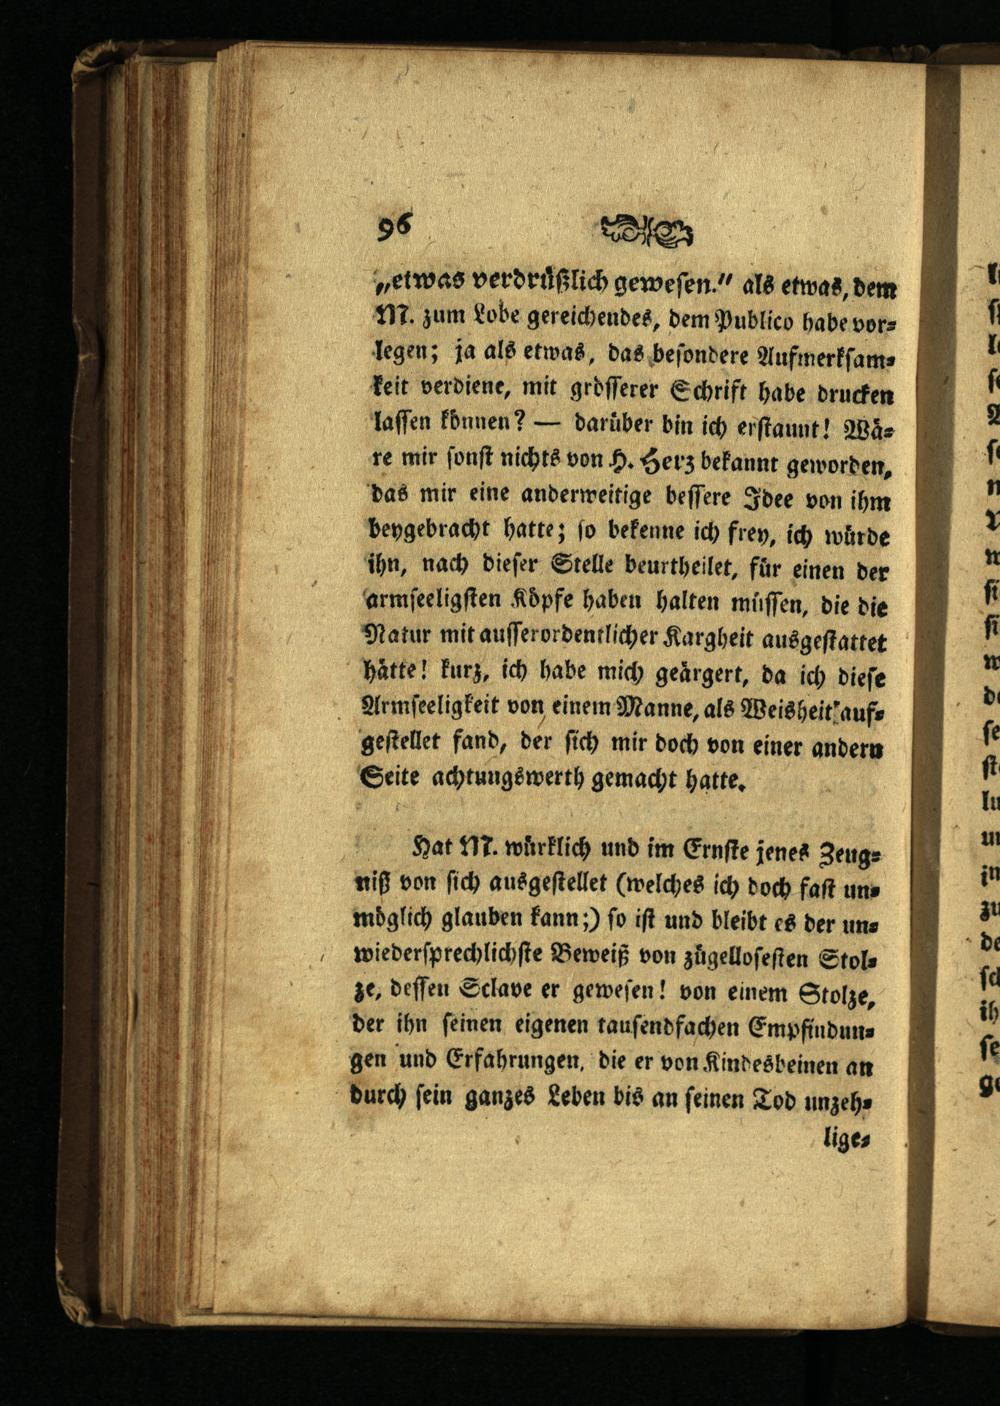 96
„etwas verdrüßlich gewesen.“ als etwas, dem
M. zum Lobe gereichendes, dem Publico habe vor-
legen; ja als etwas, das besondere Aufmerksam-
keit verdiene, mit grösserer Schrift habe drucken
lassen können? — darüber bin ich erstaunt! Wä-
re mir sonst nichts von H. Herz bekannt geworden,
das mir eine anderweitige bessere Idee von ihm
beygebracht hatte; so bekenne ich frey, ich würde
ihn, nach dieser Stelle beurtheilet, für einen der
armseeligsten Köpfe haben halten müssen, die die
Natur mit ausserordentlicher Kargheit ausgestattet
hätte! kurz, ich habe mich geärgert, da ich diese
Armseeligkeit von einem Manne, als Weisheit auf-
gestellet fand, der sich mir doch von einer andern
Seite achtungswerth gemacht hatte.
Hat M. würklich und im Ernste jenes Zeug-
niß von sich ausgestellet (welches ich doch fast un-
möglich glauben kann;) so ist und bleibt es der un-
wiedersprechlichste Beweiß von zügellosesten Stol-
ze, dessen Sclave er gewesen! von einem Stolze,
der ihn seinen eigenen tausendfachen Empfindun-
gen und Erfahrungen, die er von Kindesbeinen an
durch sein ganzes Leben bis an seinen Tod unzeh-
lige-